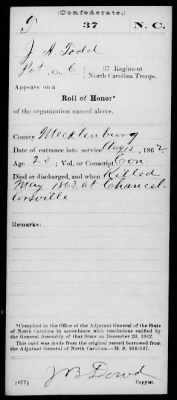 (Confederate.)
J 37 N. C.
J. A. Todd
Pvt. Co C, 37 Regiment
North Carolina Troops.
Appears on a
Roll of Honor*
of the organization named above.
County Mecklenburg
Date of entrance into service Aug 15, 1862
Age 23; Vol. or Conscript Con
Died or discharged, and when Killed
May 1863 at Chancel-
lorsville
Remarks:
*Compiled in the Office of the Adjutant General of the State
of North Carolina in accordance with resolutions ratified by
the General Assembly of that State on December 20, 1862.
This card was made from the original record borrowed from
the Adjutant General of North Carolina—M. S.
(677) J B Dowd
Copyist.